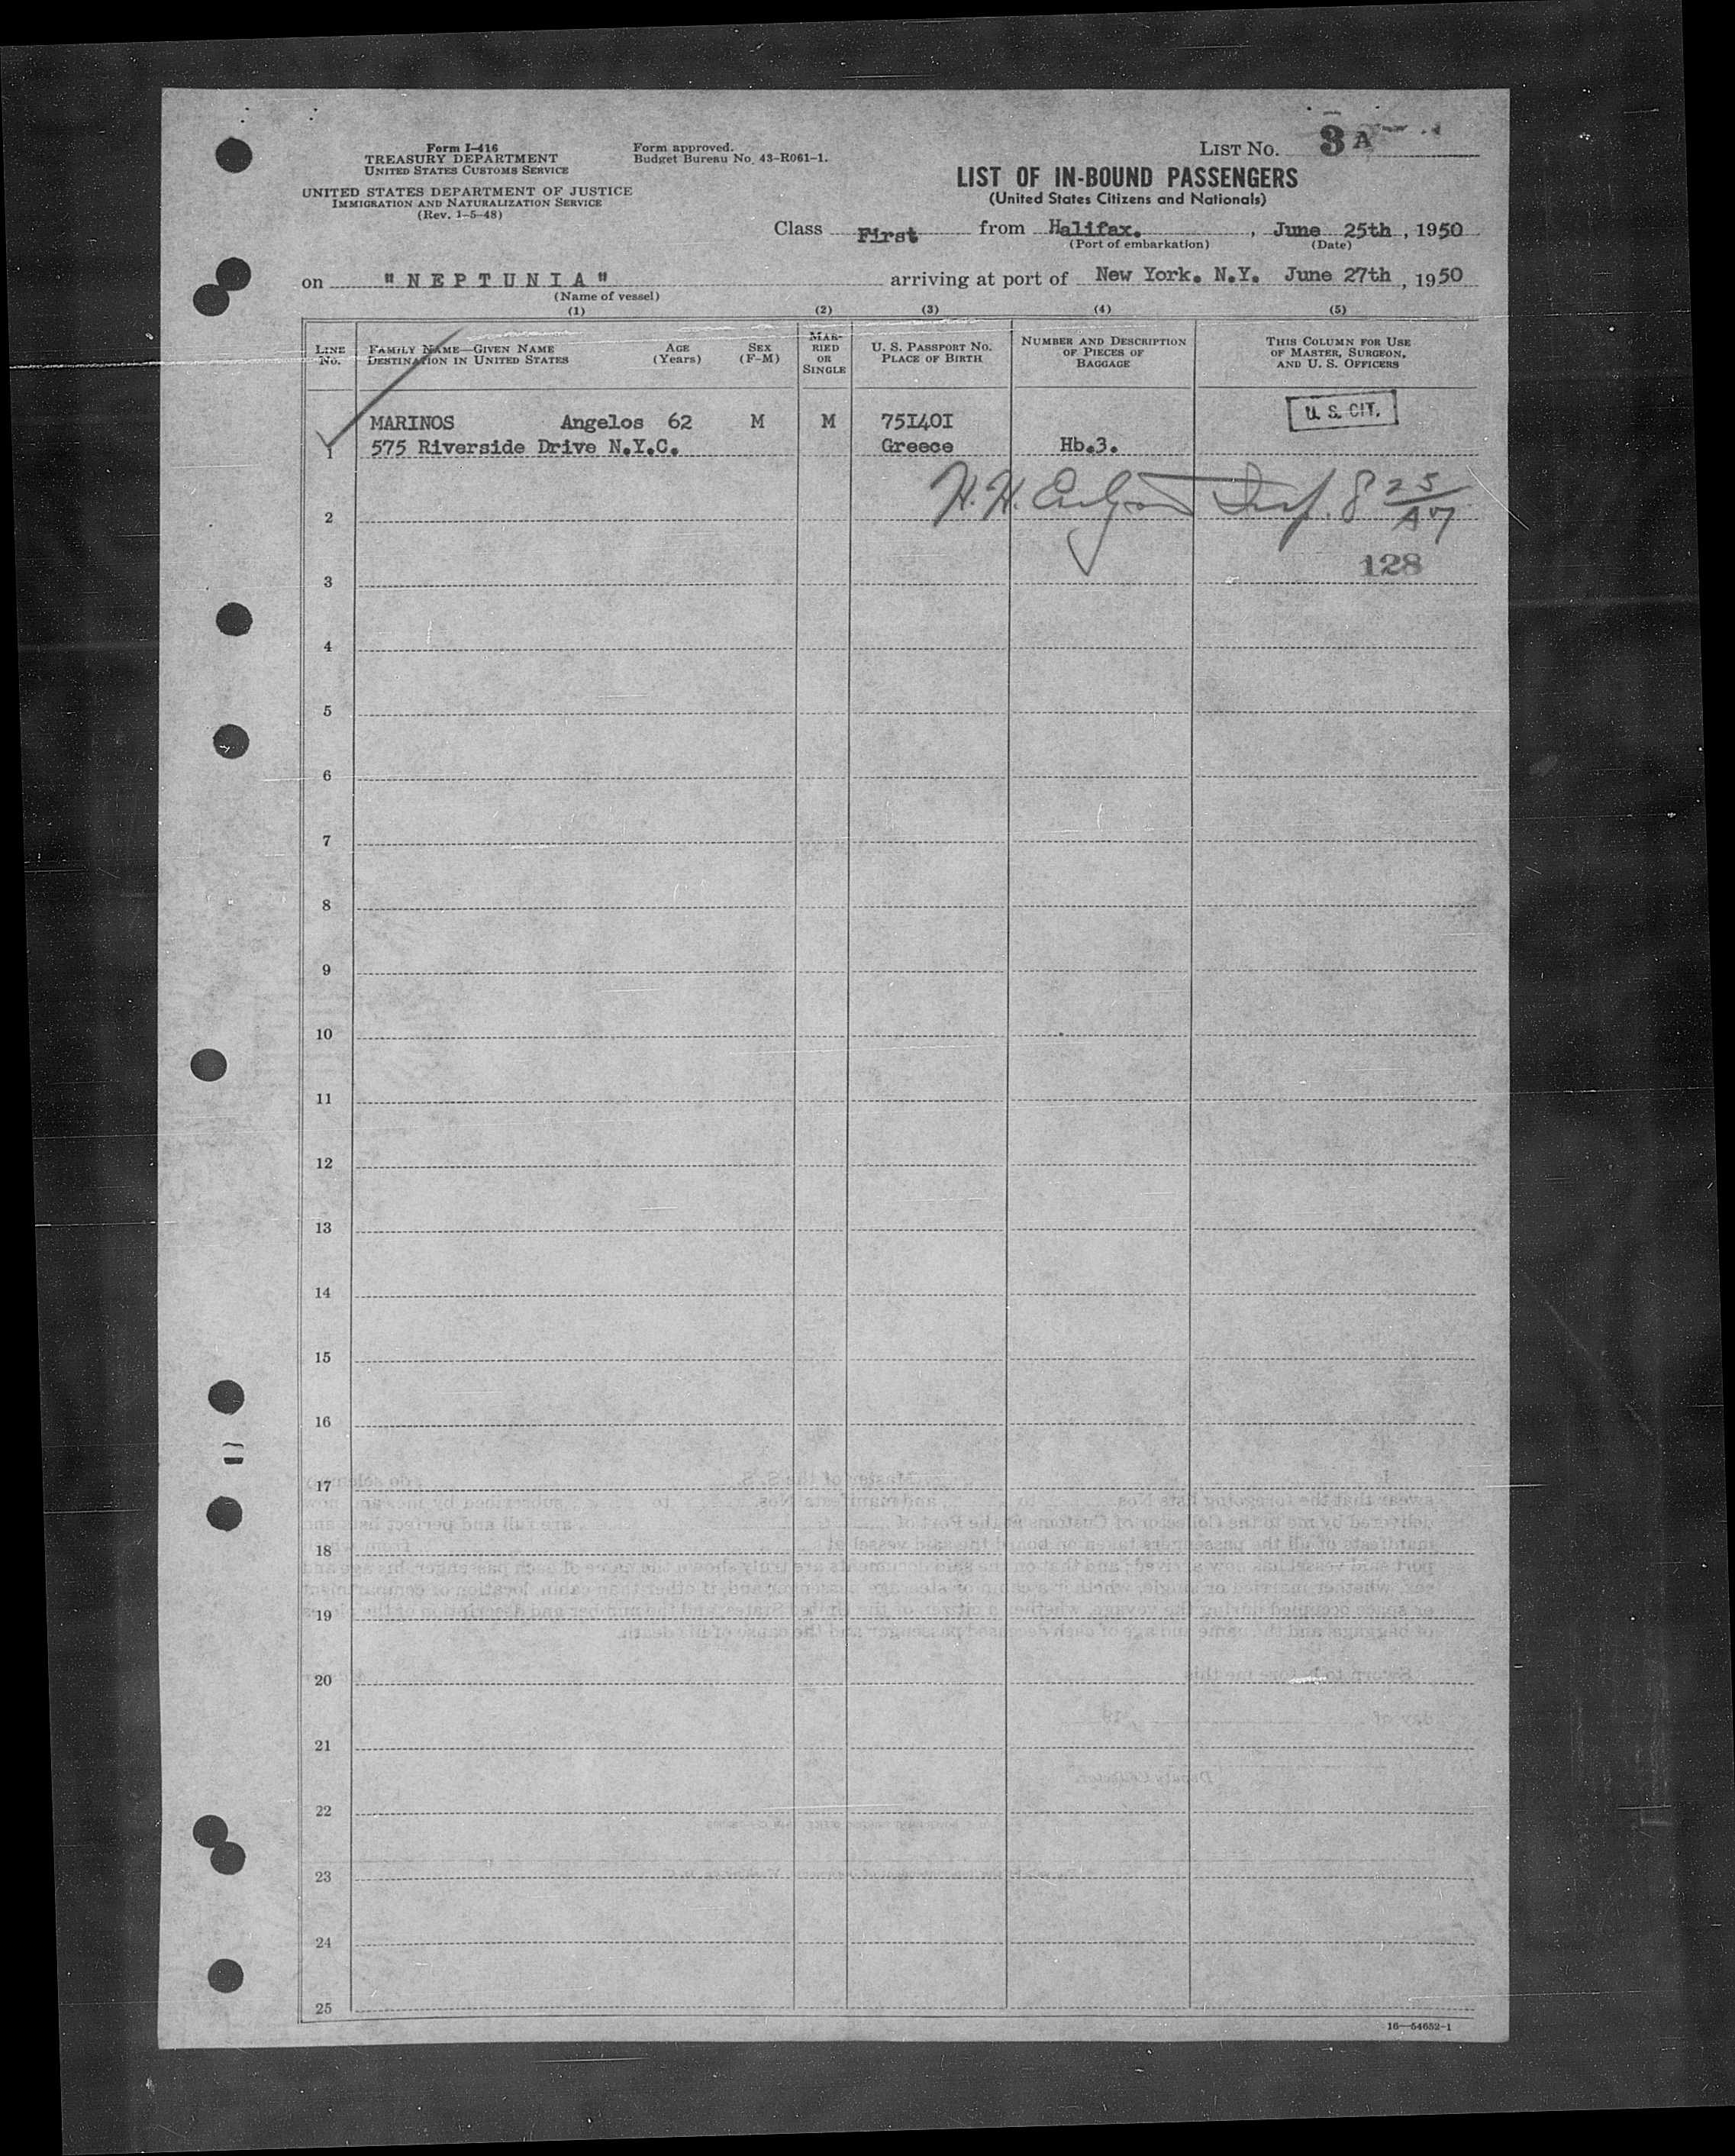 LIST NO. 3 A
Form I-416
TREASURY DEPARTMENT
UNITED STATES CUSTOMS SERVICE
UNITED STATES DEPARTMENT OF JUSTICE
IMMIGRATION AND NATURALIZATION SERVICE
(Rev. 1-5-48)
Form approved.
Budget Bureau No. 43-R061-1.
LIST OF IN-BOUND PASSENGERS
(United States Citizens and Nationals)
Class First from Halifax. , June 25th , 1950
(Port of embarkation) (Date)
on "NEPTUNIA" arriving at port of New York. N.Y. June 27th , 1950
(Name of vessel)
(1) (2) (3) (4) (5)
LINE No.
FAMILY NAME—GIVEN NAME
DESTINATION IN UNITED STATES
AGE (Years)
SEX (F-M)
MARRIED OR SINGLE
U. S. PASSPORT NO.
PLACE OF BIRTH
NUMBER AND DESCRIPTION
OF PIECES OF
BAGGAGE
THIS COLUMN FOR USE
OF MASTER, SURGEON,
AND U. S. OFFICERS
MARINOS Angelos 62 M M 75I40I U. S. CIT.
1 575 Riverside Drive N.Y.C. Greece Hb.3.
H. H.
2
128
3
4
5
6
7
8
9
10
11
12
13
14
15
16
17
18
19
20
21
22
23
24
25
16—54652-1